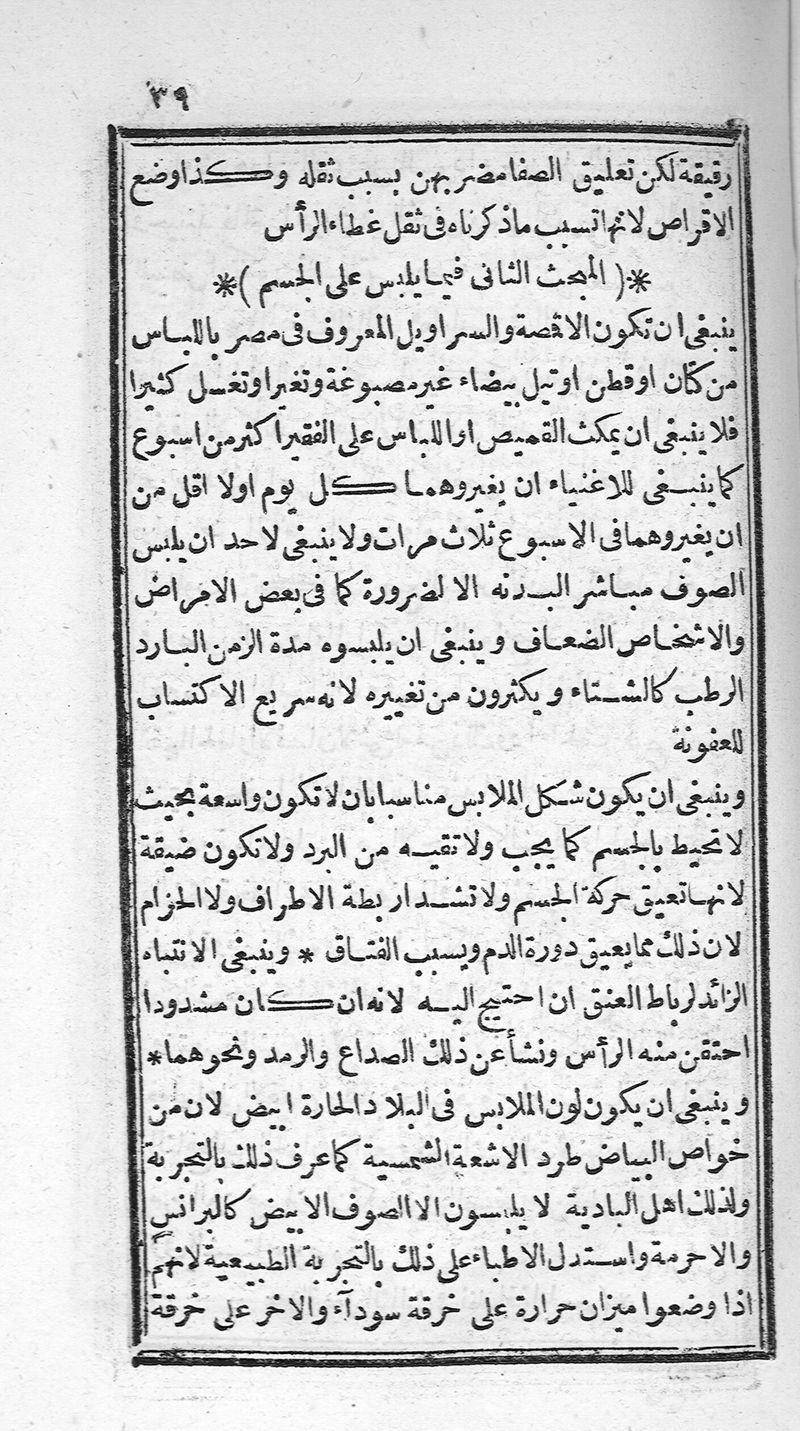 ٣٩
رقيقة لكن تعليق الصفا مضر بهن بسبب ثقله وكذا وضع
الاقراص لانها تسبب ماذكرناه فى ثقل غطاء الرأس
*( المبحث الثانى فيما يلبس على الجسم )*
ينبغى ان تكون الاقصة والسراويل المعروف فى مصر باللباس
من كتّان اوقطن اوتيل بيضاء غير مصبوغة وتغير اوتغسل كثيرا
فلا ينبغى ان يمكث القميص او اللباس على الفقير اكثر من اسبوع
كما ينبغى للاغنياء ان يغيروهما كل يوم اولا اقل من
ان يغيروهما فى الاسبوع ثلاث مرات ولا ينبغى لاحد ان يلبس
الصوف مباشر البدنه الا لضرورة كما فى بعض الامراض
والاشخاص الضعاف وينبغى ان يلبسوه مدة الزمن البارد
الرطب كالشتاء ويكثرون من تغييره لانه سريع الاكتساب
للعفونة
وينبغى ان يكون شكل الملابس مناسبا بان لا تكون واسعة بحيث
لا تحيط بالجسم كما يجب ولا تقيه من البرد ولا تكون ضيقة
لانها تعيق حركة الجسم ولا تشد اربطة الاطراف ولا الحزام
لان ذلك مما يعيق دورة الدم ويسبب الفتاق * وينبغى الانتباه
الزائد لرباط العنق ان احتيج اليه لانه ان كان مشدودا
احتقن منه الرأس ونشأ عن ذلك الصداع والرمد ونحوهما *
وينبغى ان يكون لون الملابس فى البلاد الحارة ابيض لان من
خواص البياض طرد الاشعة الشمسية كما عرف ذلك بالتجربة
ولذلك اهل البادية لا يلبسون الا الصوف الابيض كالبرانس
والاحرمة واستدل الاطباء على ذلك بالتجربة الطبيعية لانهم
اذا وضعوا ميزان حرارة على خرقة سودآء والاخر على خرقة